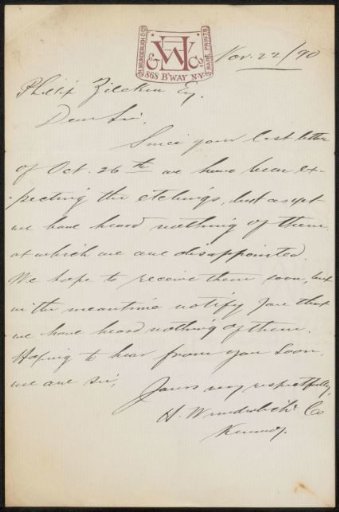 H. WUNDERLICH & CO.
W & Co
868 B'WAY N.Y.
Nov. 22/90
Philip Zilcken Eq.
Dear Sir.
Since your last letter
of Oct. 26th we have been ex-
pecting the etchings, but as yet
we have heard nothing of them
at which we are disappointed.
We hope to receive them soon, but
in the meantime notify you that
we have heard nothing of them.
Hoping to hear from you soon,
we are sir,
Yours very respectfully,
H. Wunderlich & Co